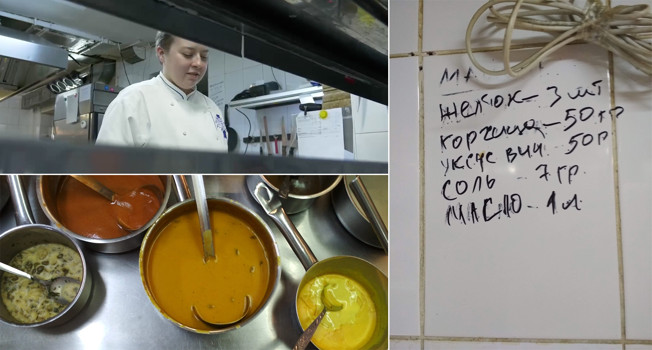 желток - 3 шт
горчица - 50 гр
уксус вин. 50 г
соль - 7 гр.
масло - 1 л.